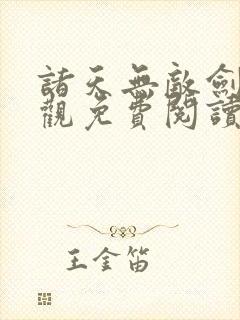 諸天無敵劍
觀免費閱讀
王金笛